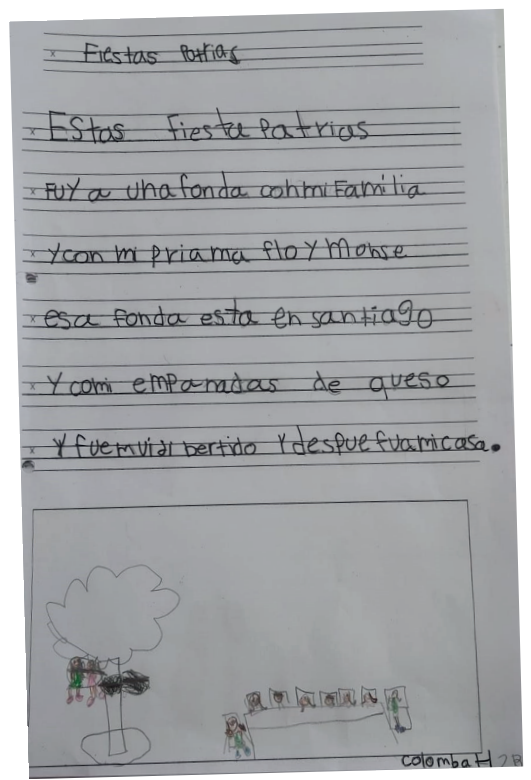 Fiestas Patrias
Estas fiesta patrias
FuY a una fonda con mi Familia
y con mi priama flo y Monse
esa fonda esta en santiago
Y comi empanadas de queso
Y fue muidi bertido Y despue fu a mi casa.
colomba H 2B